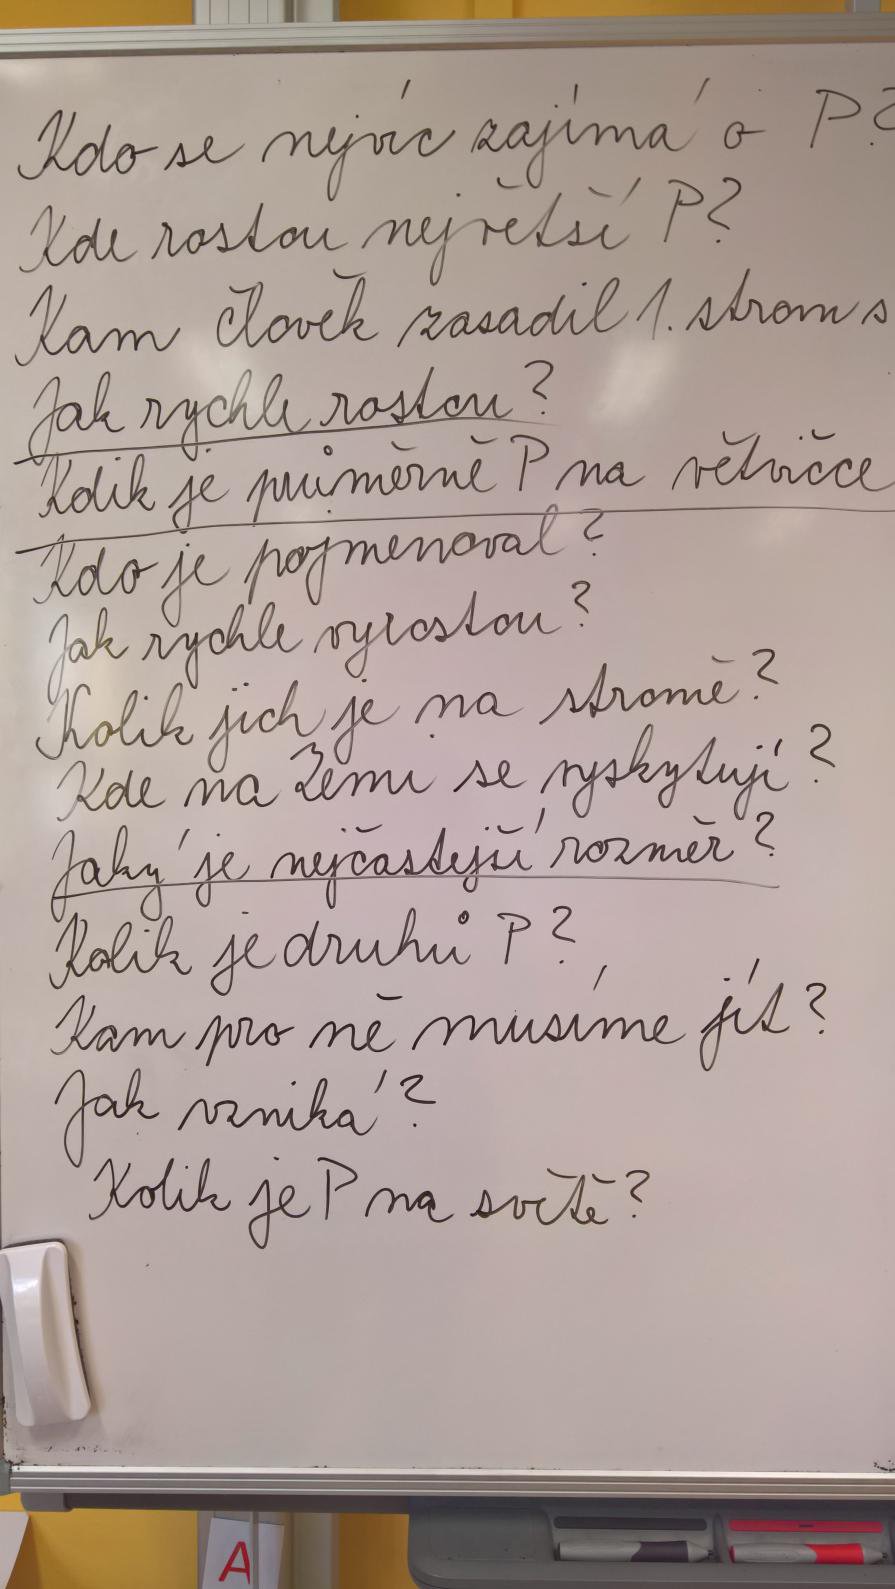 Kdo se nejvíc zajímá o P?
Kde rostou největší P?
Kam člověk zasadil 1. strom s
Jak rychle rostou?
Kolik je průměrně P na větvičce
Kdo je pojmenoval?
Jak rychle vyrostou?
Kolik jich je na stromě?
Kde na Zemi se vyskytují?
Jaký je nejčastejší rozměr?
Kolik je druhů P?
Kam pro ně musíme jít?
Jak vzniká?
Kolik je P na světě?
A